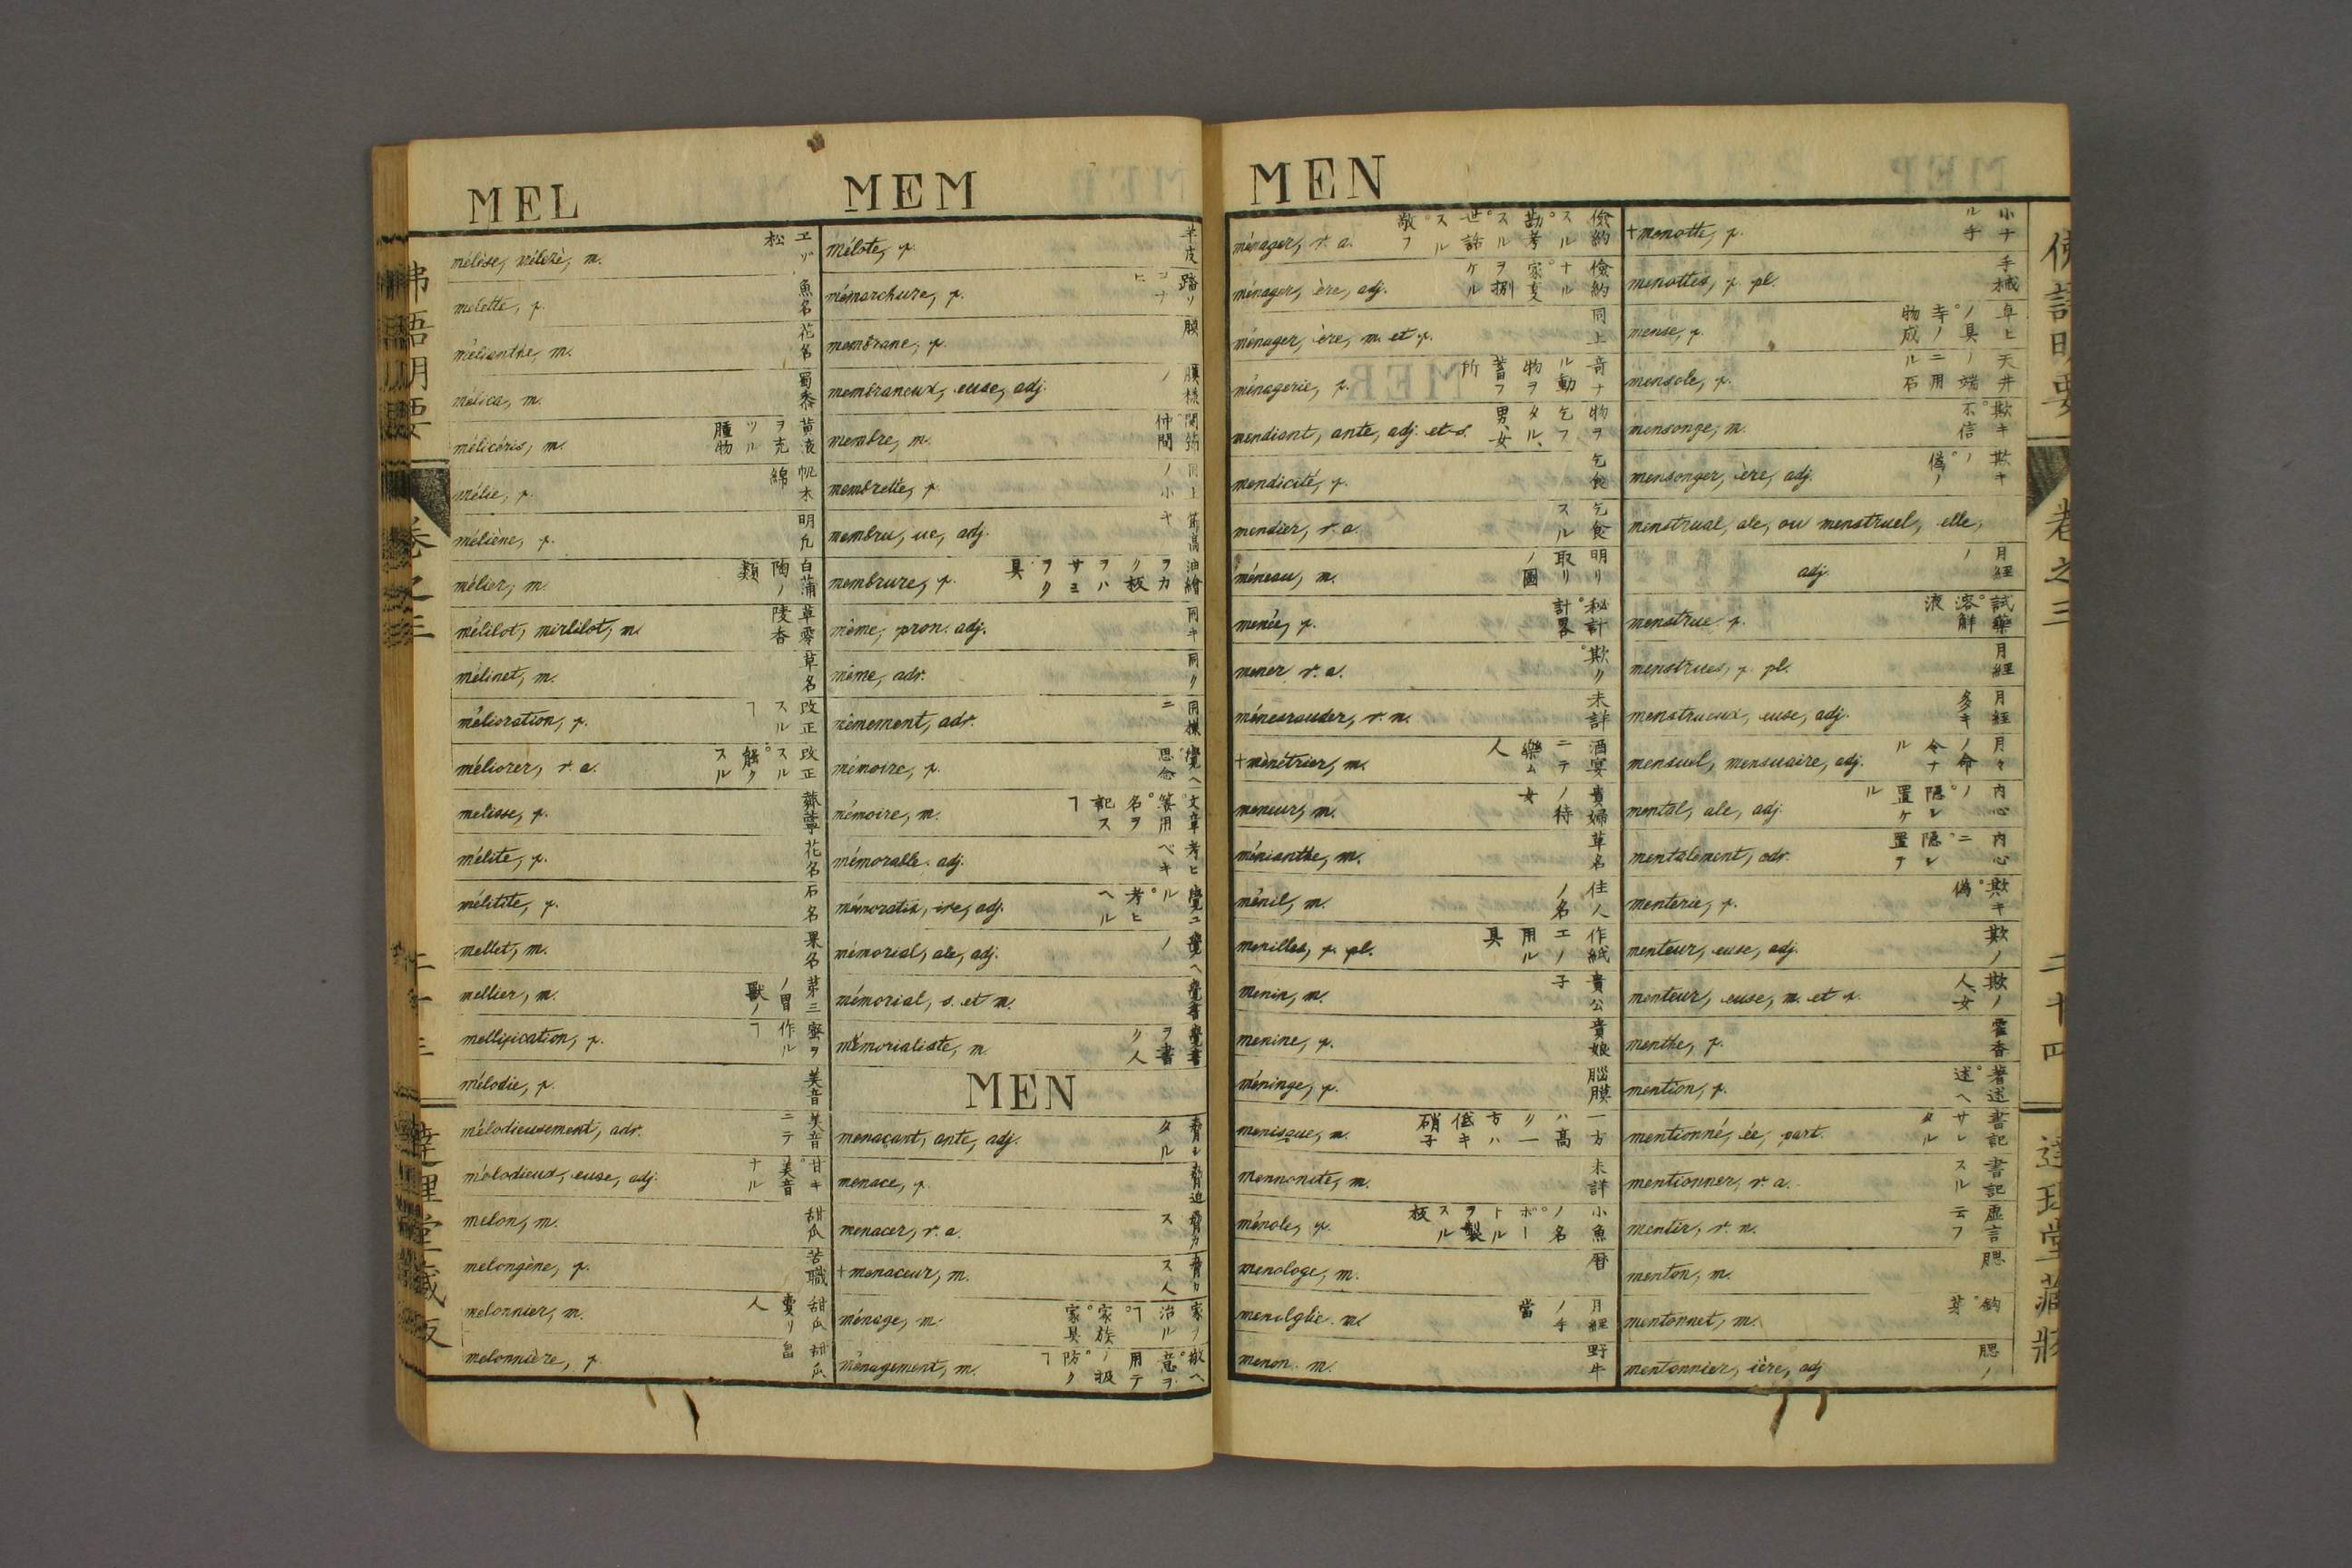 MEL
mélèse, mélèze, m.
melette, f. 魚名
mélianthe, m. 花名
mélica, m. 蜀黍
mélicéris, m. 黄液ヲ充ツル腫物
mélie, f.
méliène, f. 明凡
mélier, m.
mélilot, mirlilot, m. 草零陵香
mélinet, m. 草名
mélioration, f. 改正スルヿ
méliorer, v. a. 改正スル
melisse, f.
mélite, f. 花名
mélitite, f. 石名
mellet, m. 果名
mellier, m. 獣ノ第三ノ胃
mellification, f. 蜜ヲ作ルヿ
mélodie, f. 美音
mélodieusement, adv. 美音ニテ
mélodieux, euse, adj. 甘キ。美音ナル
melon, m. 甜瓜
melongène, f.
melonnier, m. 甜瓜賣リ人
melonnière, f. 甜瓜畠
MEM
mélote, f. 羊皮
mémarchure, f.
membrane, f. 膜
membraneux, euse, adj. 膜様ノ
membre, m. 仲間
membrette, f. 同上ノ小
membru, ue, adj.
membrure, f.
même, pron. adj. 同キ
même, adv. 同ク
mêmement, adv. 同様ニ
mémoire, f. 覺ヘ。思念
mémoire, m.
mémorable. adj. 考ヒベキ
mémoratif, ive, adj.
mémorial, ale, adj. 覺ヘノ
mémorial, s. et m. 覺書
mémorialiste, m. 覺書ヲ書ク人
MEN
menaçant, ante, adj.
menace, f. 脅迫
menacer, v. a.
+menaceur, m.
ménage, m. 家ノ治ルヿ。家族。家具
ménagement, m.
MEN
ménager, v. a. 儉約スル。勘考スル。世話スル。敬フ
ménager, ère, adj. 儉約ナル
ménager, ère, m. et f. 同上
ménagerie, f. 奇ナル動物ヲ蓄フ所
mendiant, ante, adj. et s. 物ヲ乞フタル男、女
mendicité, f. 乞食
mendier, v. a. 乞食スル
méneau, m. 明リ取リノ
menée, f. 秘計。計畧
mener v. a. 欺ク
ménesrauder, v. n. 未詳
+ménétrier, m. 酒宴ニテ樂ム人
meneur, m. 貴婦ノ待女
ménianthe, m. 草名
ménil, m. 佳人ノ名
menilles, f. pl. 作紙エノ用ル具
menin, m. 貴公子
menine, f. 貴娘
méninge, f. 脳膜
menisque, m. 一方ハ高ク一方ハ低キ硝子
mennonite, m. 未詳
ménole, f. 小魚ノ名。
menologe, m. 暦
menolglie. m.
menon. m. 野牛
+menotte, f. 小ナル手
menottes, f. pl. 手械
mense, f.
mensole, f. 天井ノ端ニ用ル石
mensonge, m. 欺キ。不信
mensonger, ère, adj. 欺キノ。偽ノ
menstrual, ale, ou menstruel, elle,
adj. 月経ノ
menstrue f. 試藥。溶解液
menstrues, f. pl. 月経
menstrueux, euse, adj. 月経多キ
mensuel, mensuaire, adj. 月々ノ
mental, ale, adj. 内心ノ。隠レ置ケル
mentalement, adv. 内心ニ。隠レ置テ
menterie, f. 欺キ。偽
menteur, euse, adj. 欺ノ
menteur, euse, m. et f. 欺ノ人、女
menthe, f. 霍香
mention, f. 著述。述ヘ
mentionné, ée, part. 書記サレタル
mentionner, v. a. 書記スル
mentir, v. n. 虚言云フ
menton, m. 腮
mentonnet, m.
mentonnier, ière, adj 腮ノ
佛語明要
巻之三
二十四
達理堂藏版